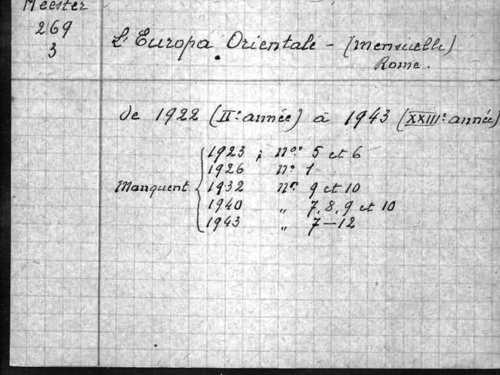 Meester
269
3
L'Europa Orientale - (mensuelle)
Rome.
de 1922 (IIe année) à 1943 (XXIIIe année)
Manquent
1923 ; nos 5 et 6
1926 no 1
1932 nos 9 et 10
1940 „ 7, 8, 9 et 10
1943 „ 7-12